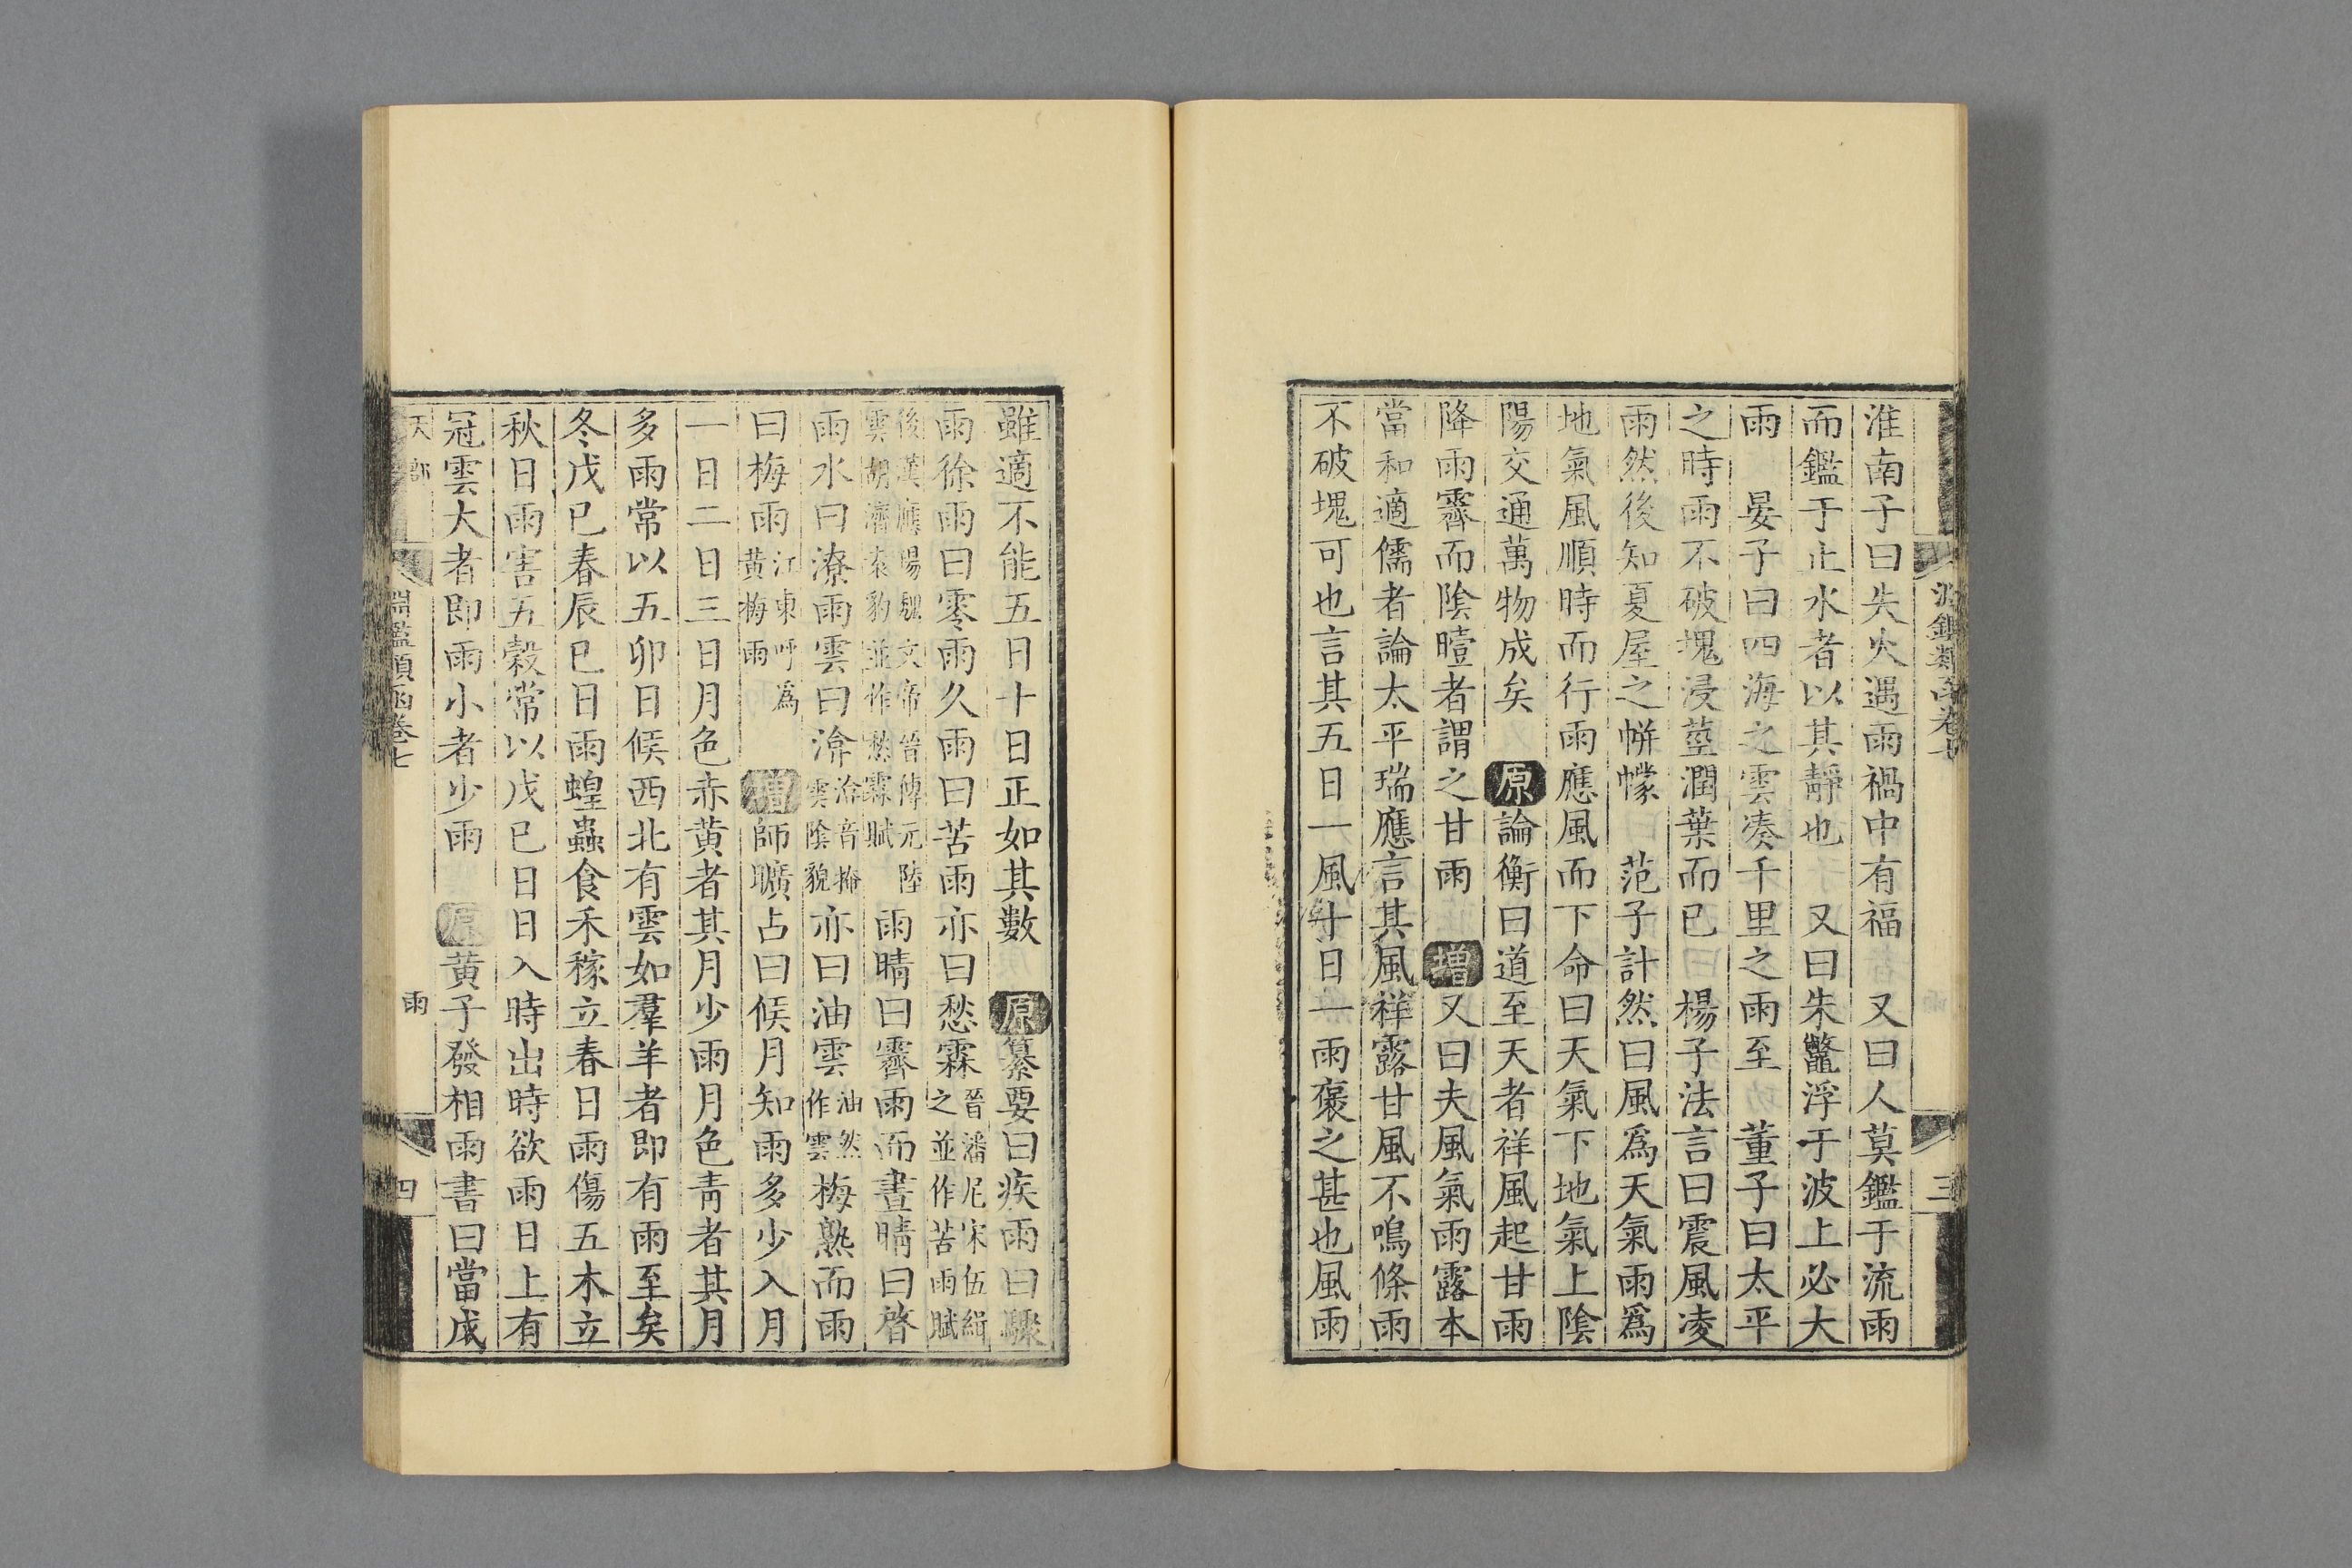 淮南子曰失火遇雨禍中有福　又曰人莫鑑于流雨
而鑑于止水者以其靜也　又曰朱鼈浮于波上必大
雨　晏子曰四海之雲湊千里之雨至　董子曰太平
之時雨不破塊浸莖潤葉而已　楊子法言曰震風凌
雨然後知夏屋之帡幪　范子計然曰風爲天氣雨爲
地氣風順時而行雨應風而下命曰天氣下地氣上陰
陽交通萬物成矣　原論衡曰道至天者祥風起甘雨
降雨霽而陰曀者謂之甘雨　增又曰夫風氣雨露本
當和適儒者論太平瑞應言其風祥露甘風不鳴條雨
不破塊可也言其五日一風十日一雨褒之甚也風雨
淵鑑類函卷七
三
雖適不能五日十日正如其數　原纂要曰疾雨曰驟
雨徐雨曰零雨久雨曰苦雨亦曰愁霖晉潘尼宋伍緝之並作苦雨賦
後漢應瑒魏文帝晉傅元陸雲胡濟袁豹並作愁霖賦　雨晴曰霽雨而晝晴曰啓
雨水曰潦雨雲曰渰渰音掩雲陰貌　亦曰油雲油然作雲　梅熟而雨
曰梅雨江東呼爲黄梅雨　增師曠占曰候月知雨多少入月
一日二日三日月色赤黄者其月少雨月色靑者其月
多雨常以五卯日候西北有雲如羣羊者即有雨至矣
冬戊己春辰巳日雨蝗蟲食禾稼立春日雨傷五木立
秋日雨害五穀常以戊己日日入時出時欲雨日上有
冠雲大者即雨小者少雨　原黄子發相雨書曰當戍
天部
淵鑑類函卷七
雨
四